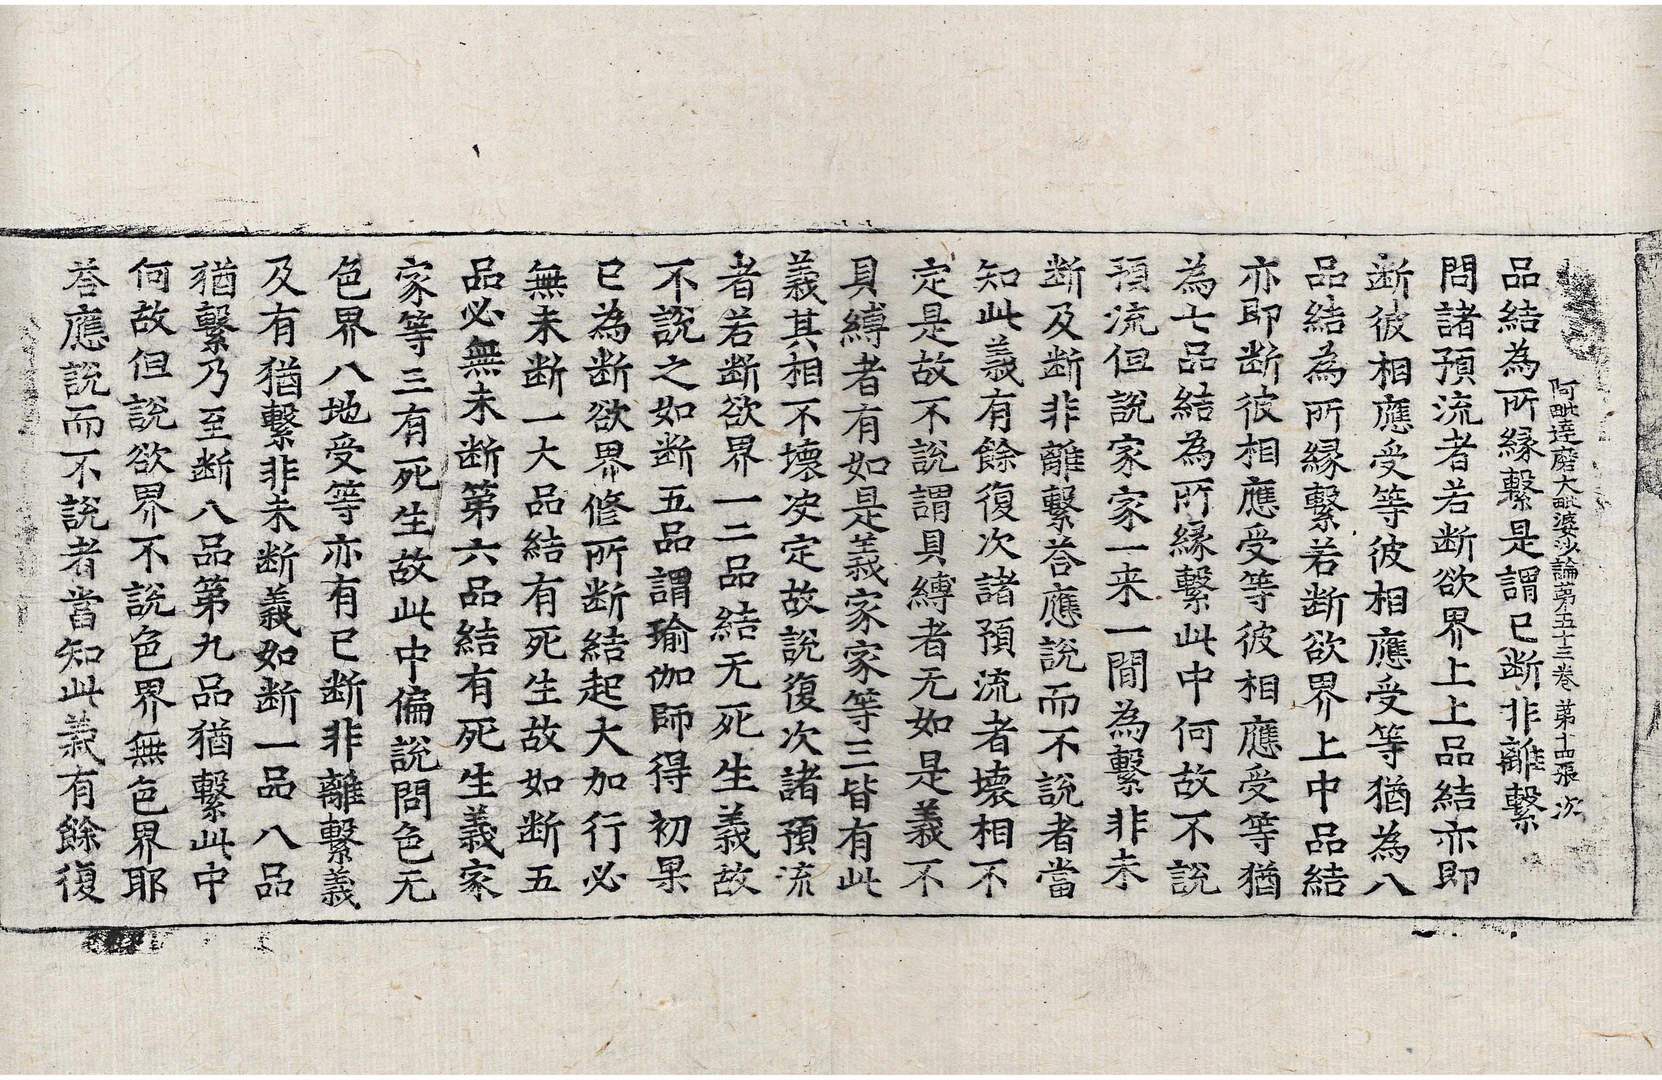 阿毗達磨大毗婆沙論第五十三卷 第十四張 次
品結為所縁繫是謂已断非離繫
問諸預流者若断欲界上上品結亦即
断彼相應受等彼相應受等猶為八
品結為所縁繫若断欲界上中品結
亦即断彼相應受等彼相應受等猶
為七品結為所縁繫此中何故不説
預流但説家家一来一間為繫非未
断及断非離繫荅應説而不説者當
知此義有餘復次諸預流者壞相不
定是故不説謂具縛者无如是義不
具縛者有如是義家家等三皆有此
義其相不壞决定故説復次諸預流
者若断欲界一二品結无死生義故
不説之如断五品謂瑜伽師得初果
已為断欲界修所断結起大加行必
無未断一大品結有死生故如断五
品必無未断第六品結有死生義家
家等三有死生故此中偏説問色无
色界八地受等亦有已断非離繫義
及有猶繫非未断義如断一品八品
猶繫乃至断八品第九品猶繫此中
何故但説欲界不説色界無色界耶
荅應説而不説者當知此義有餘復